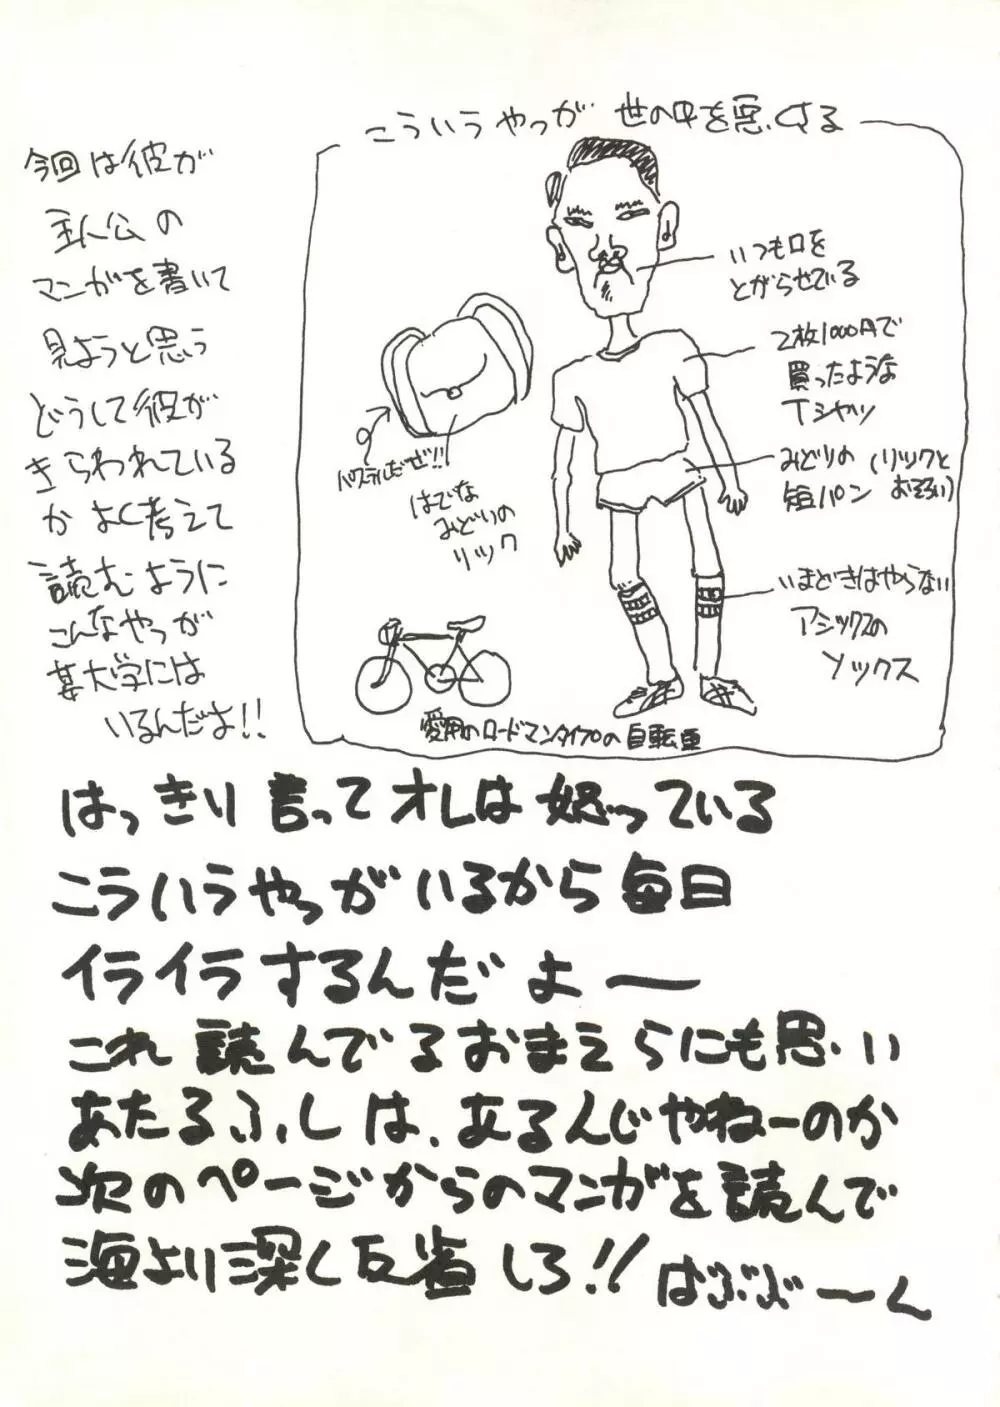 こういうやつが 世の中を悪くする
今回は彼が
主人公の
マンガを書いて
見ようと思う
どうして彼が
きらわれている
かよく考えて
読むように
こんなやつが
某大学には
いるんだよ!!
いつも口を
とがらせている
2枚1000円で
買ったような
Tシャツ
みどりの
短パン
(リックと
おそろい)
いまどきはやらない
アシックスの
ソックス
パステルだぜ!!
はでな
みどりの
リック
愛用のロードマンタイプの自転車
はっきり言ってオレは怒っている
こういうやつがいるから毎日
イライラするんだよー
これ読んでるおまえらにも思い
あたるふしは、あるんじゃねーのか
次のページからのマンガを読んで
海より深く反省しろ!! はぶぶーん